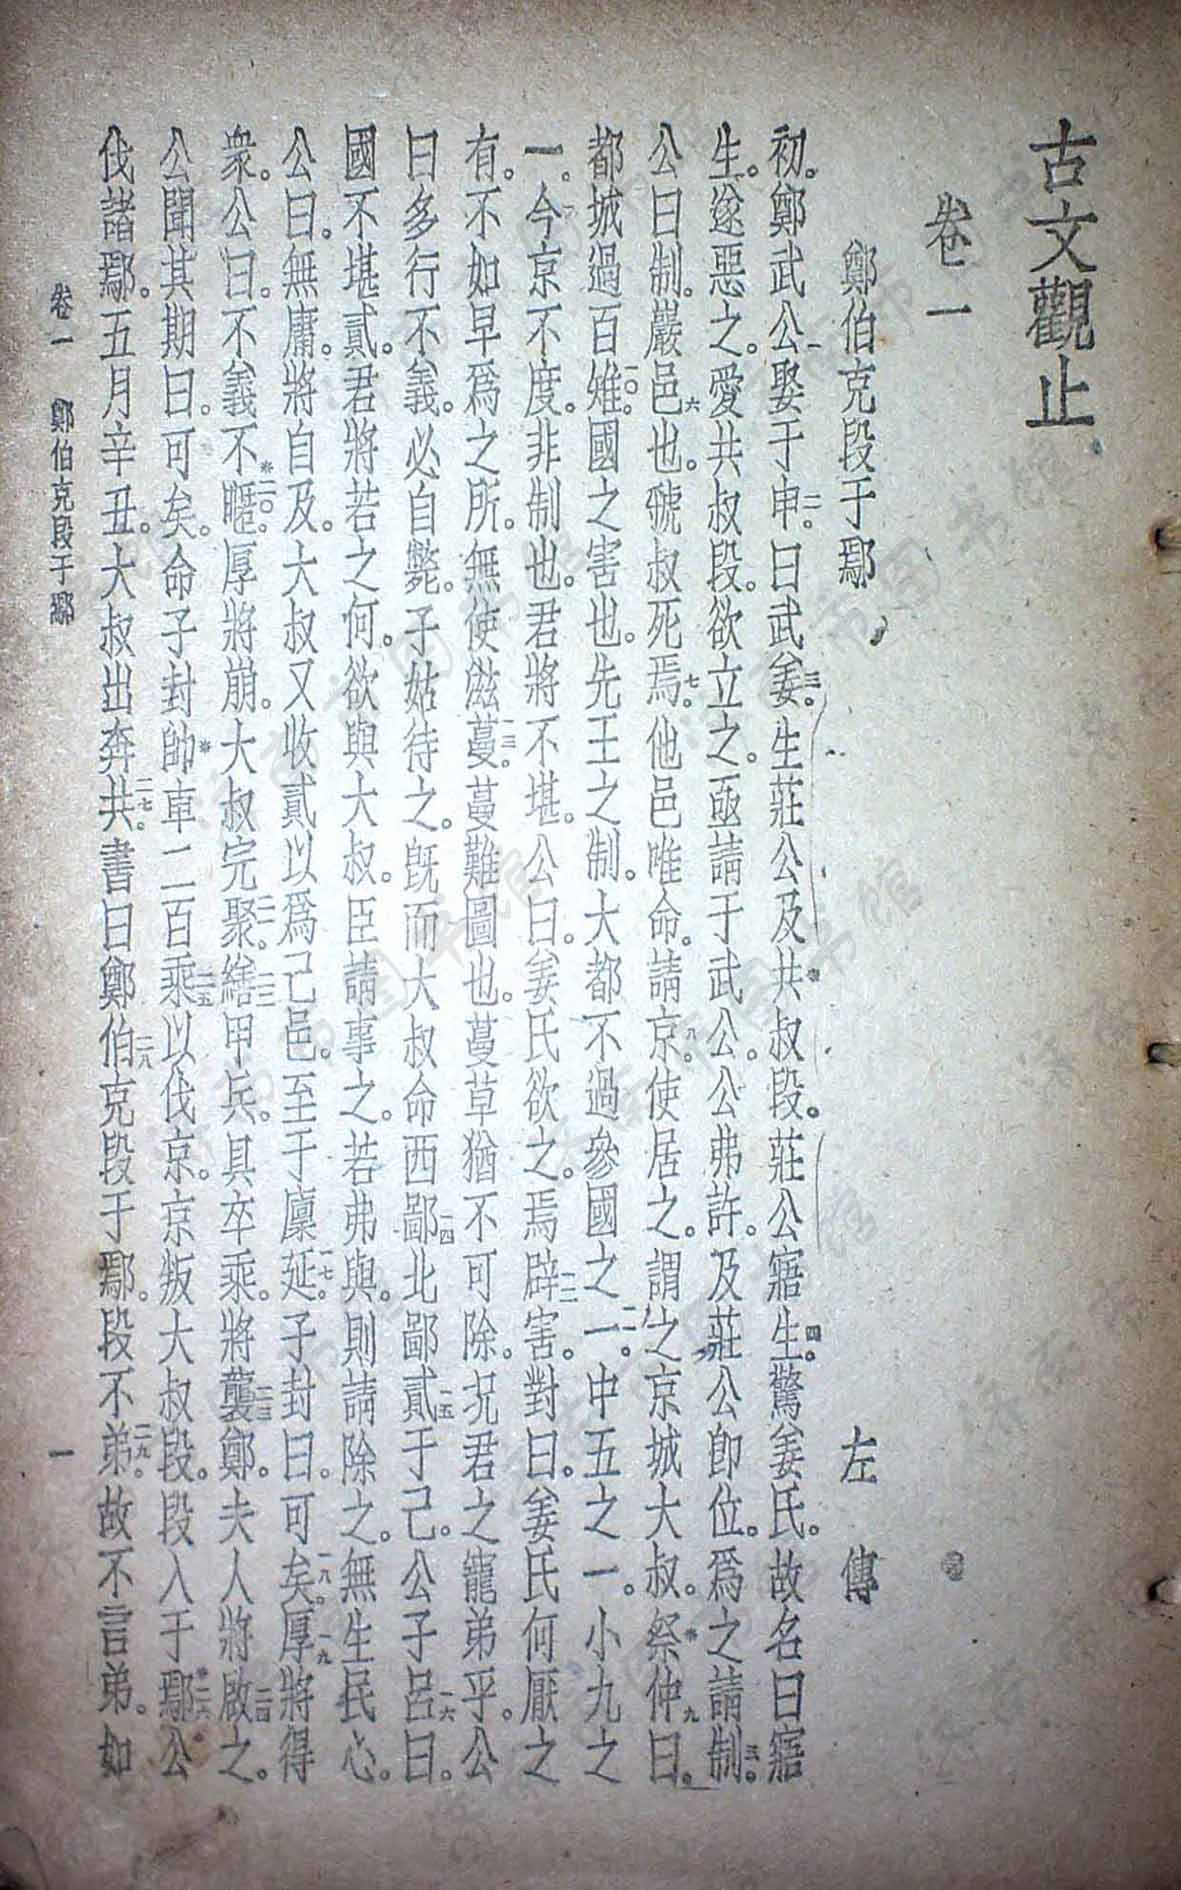 古文觀止
卷一
鄭伯克段于鄢 左傳
初。鄭武公一娶于申二。曰武姜三。生莊公及共※叔段。莊公寤生四。驚姜氏。故名曰寤
生。遂惡之。愛共叔段。欲立之。亟請于武公。公弗許。及莊公卽位。爲之請制
公曰制。巖邑六也。虢叔死焉七。他邑唯命。請京八。使居之。謂之京城大叔。祭※仲九曰。
都城過百雉一〇。國之害也。先王之制。大都不過參國之一一一。中五之一。小九之
一。今京不度。非制也。君將不堪。公曰。姜氏欲之。焉辟一二害。對曰。姜氏何厭之
有。不如早爲之所。無使滋蔓一三。蔓難圖也。蔓草猶不可除。況君之寵弟乎。公
曰多行不義。必自斃。子姑待之。旣而大叔命西鄙一四北鄙貳一五于己。公子呂一六曰。
國不堪貳。君將若之何。欲與大叔。臣請事之。若弗與。則請除之。無生民心。
公曰。無庸。將自及。大叔又收貳以爲己邑。至于廩延一七。子封曰。可矣一八。厚一九將得
衆。公曰。不義不暱※二〇。厚將崩。大叔完聚二一。繕二二甲兵。具卒乘。將襲二三鄭。夫人將啟二四之。
公聞其期曰。可矣。命子封帥※車二百乘二五以伐京。京叛大叔段。段入于鄢※二六。公
伐諸鄢。五月辛丑。大叔出奔共二七。書曰鄭伯二八克段于鄢。段不弟二九。故不言弟。如
卷一 鄭伯克段于鄢 一